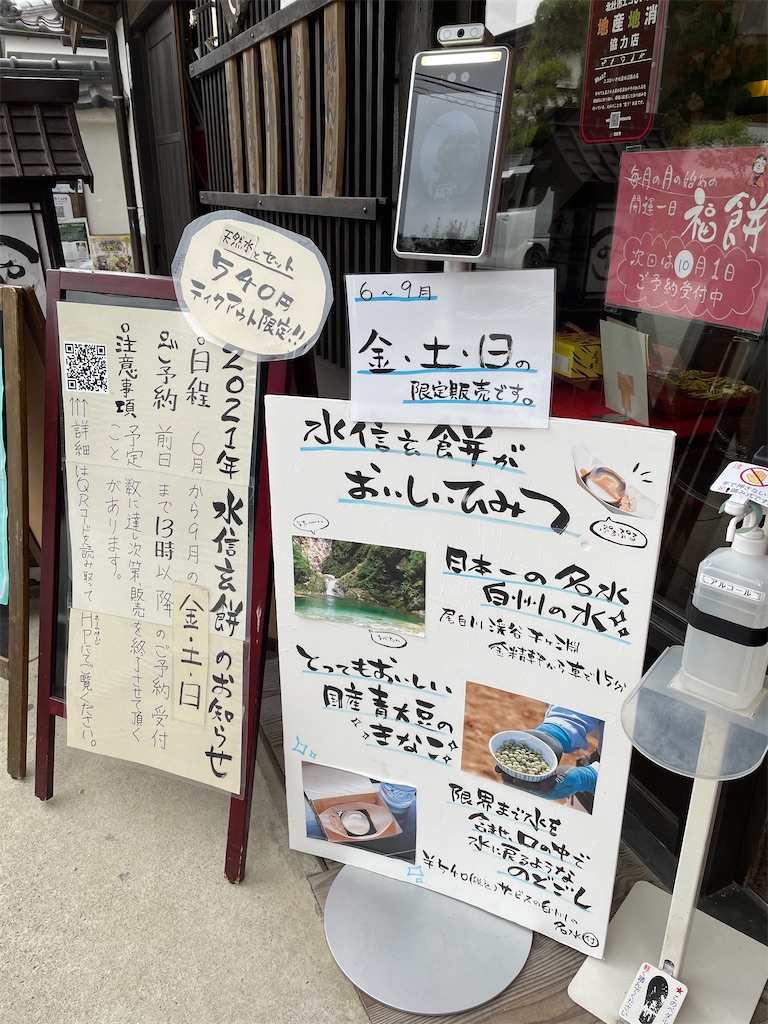 天然水とセット
540円
テイクアウト限定!!
2021年 水信玄餅のお知らせ
○日程 6月から9月の金・土・日
○ご予約 前日まで13時以降のご予約受付
○注意事項 予定数に達し次第、販売を終了させて頂く
ことがあります。
↑↑↑詳細はQRコードを読み取って
HPにてご覧ください。
6～9月
金・土・日の
限定販売です。
水信玄餅が
おいしいひみつ
ぷるぷる
日本一の名水
白州の水
尾白川渓谷千ヶ淵
金精軒から車で15分
とってもおいしい
国産青大豆の
きなこ
限界まで水を
含ませ、口の中で
水に戻るような
のどごし
¥540(税込)サービスの白州の
名水付
地産地消
協力店
毎月の月の始めの
開運一日 福餅
次回は10月1日
ご予約受付中
アルコール